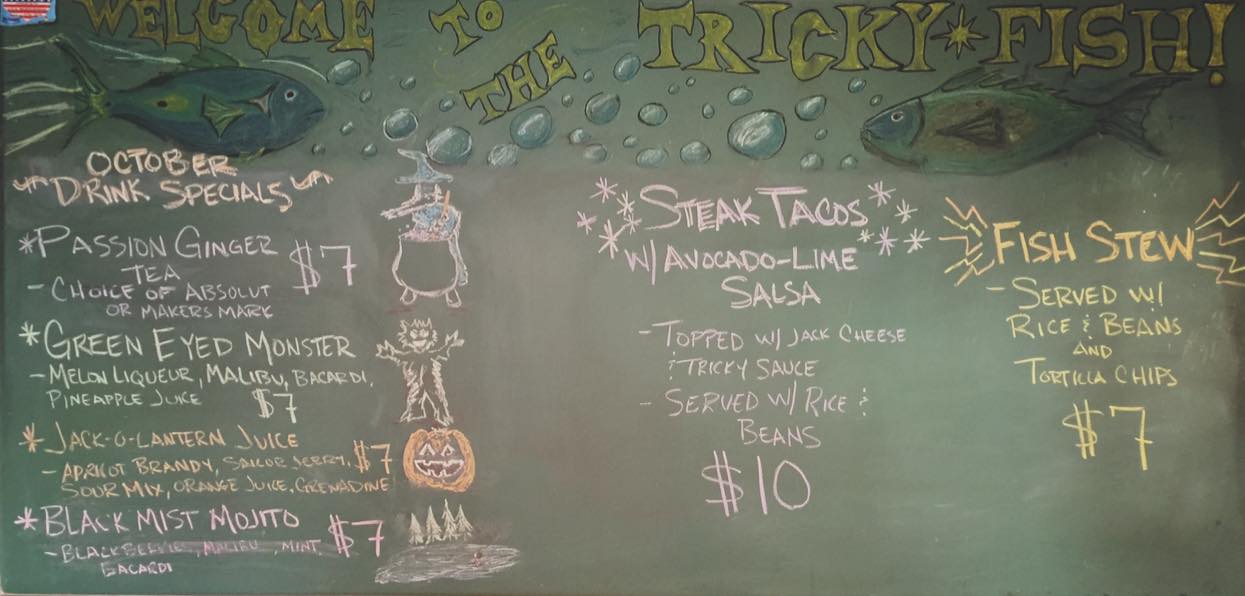 WELCOME TO
THE
TRICKY*FISH!
OCTOBER
DRINK SPECIALS
*PASSION GINGER
TEA
$7
- CHOICE OF ABSOLUT
OR MAKERS MARK
*GREEN EYED MONSTER
- MELON LIQUEUR, MALIBU, BACARDI,
PINEAPPLE JUICE $7
*JACK-O-LANTERN JUICE
- APRICOT BRANDY, SAILOR JERRY, $7
SOUR MIX, ORANGE JUICE, GRENADINE
*BLACK MIST MOJITO $7
- BLACKBERRIE, MALIBU, MINT
BACARDI
STEAK TACOS
W/ AVOCADO-LIME
SALSA
- TOPPED W/ JACK CHEESE
& TRICKY SAUCE
- SERVED W/ RICE &
BEANS
$10
FISH STEW
- SERVED W/
RICE & BEANS
AND
TORTILLA CHIPS
$7